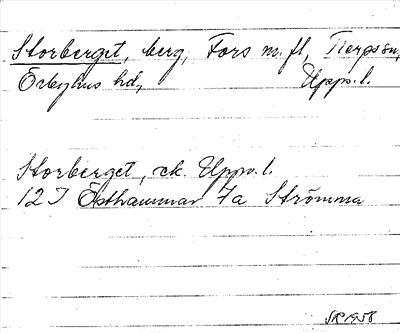 Storberget, berg, Fors m.fl, Tierps sn,
Örbyhus hd, Upps.l.
Storberget, ek. Upps.l.
12 I Östhammar 7a Strömma
SR 1958